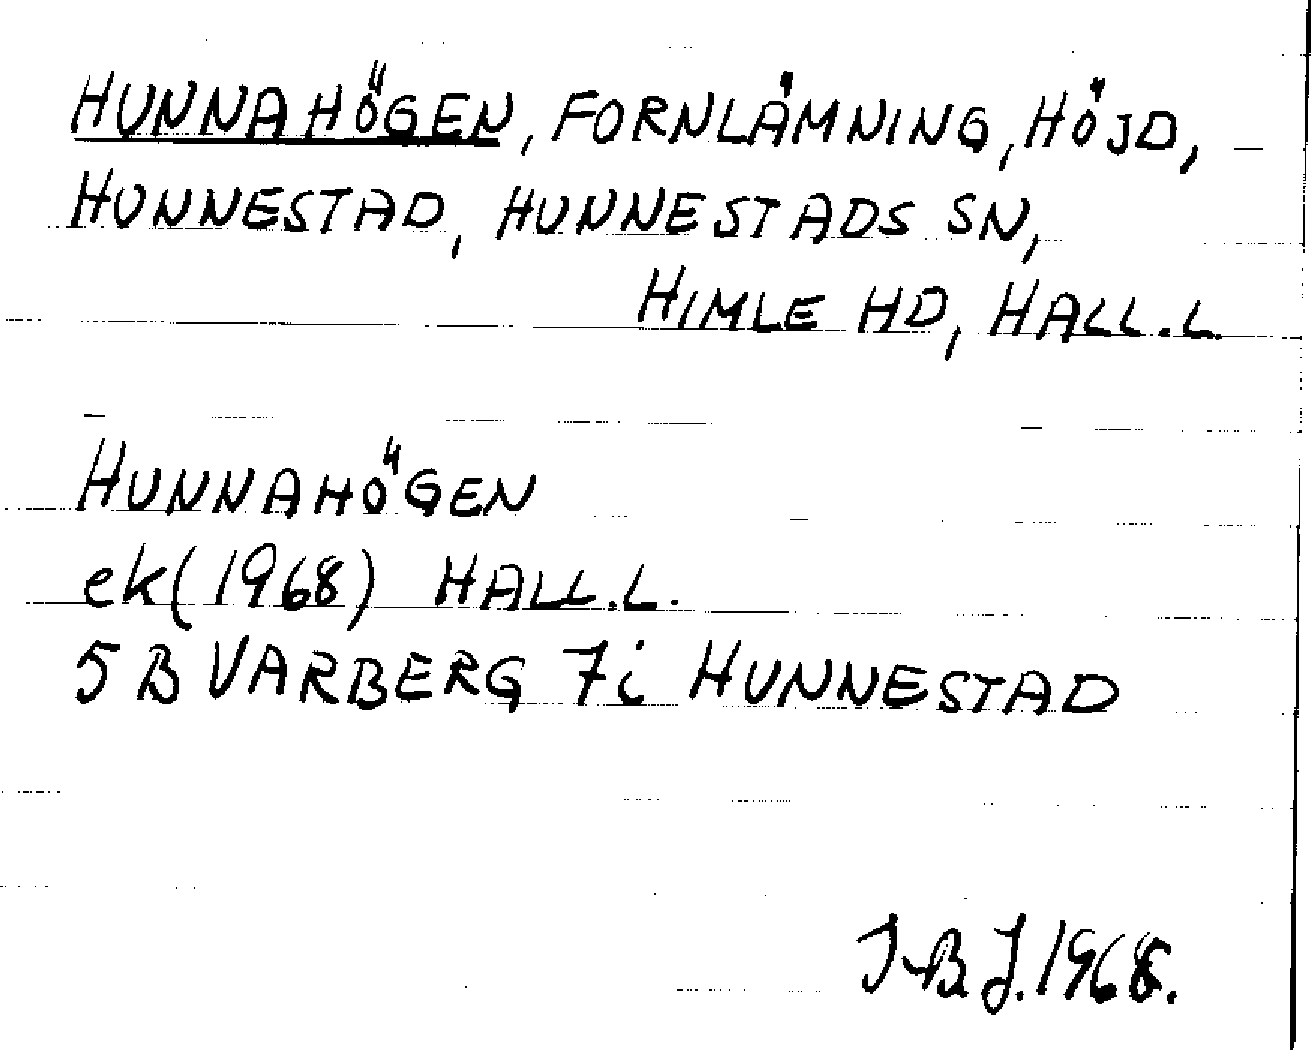 HUNNAHÖGEN, FORNLÄMNING, HÖJD,
HUNNESTAD, HUNNESTADS SN,
HIMLE HD, HALL.L.
HUNNAHÖGEN
ek(1968) HALL.L.
5 B VARBERG 7i HUNNESTAD
I-B.J. 1968.